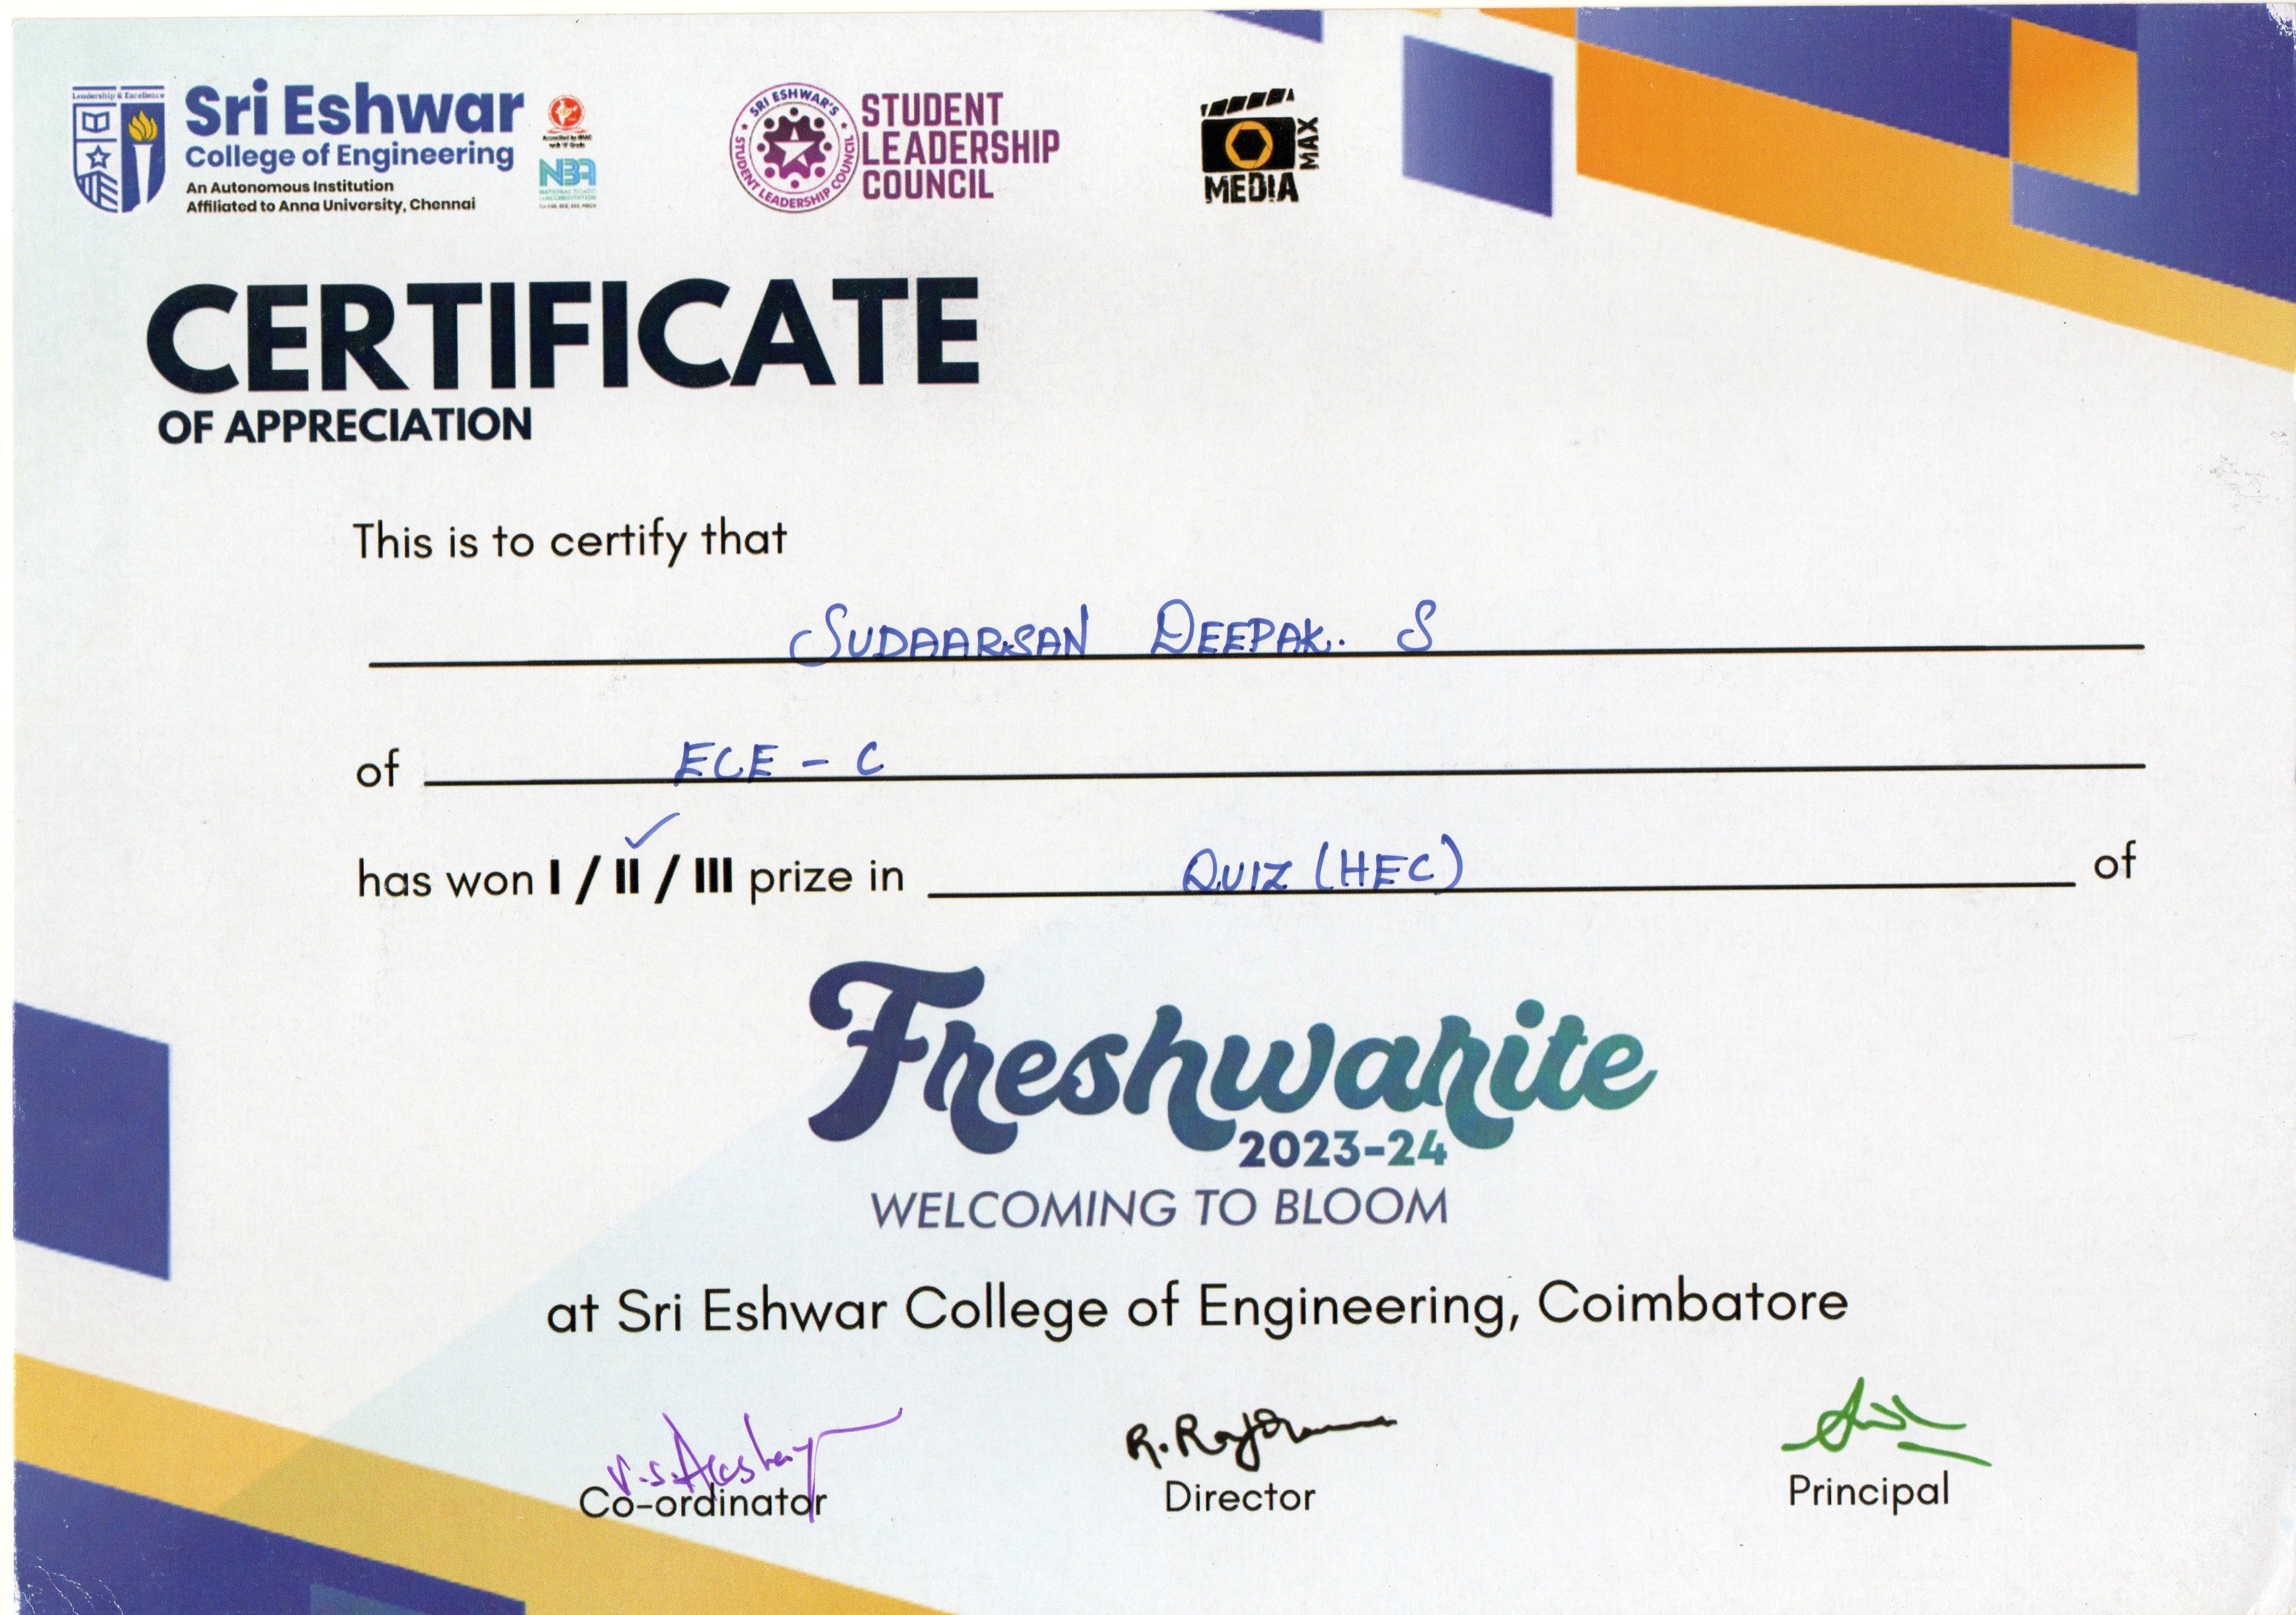 Leadership & Excellence
Sri Eshwar
College of Engineering
An Autonomous Institution
Affiliated to Anna University, Chennai
Accredited by NAAC
with 'A' Grade
NBA
NATIONAL BOARD
of ACCREDITATION
SRI ESHWAR'S
STUDENT LEADERSHIP COUNCIL
STUDENT
LEADERSHIP
COUNCIL
MEDIA
MAX
CERTIFICATE
OF APPRECIATION
This is to certify that
SUDAARSAN DEEPAK. S
of ECE - C
has won I / II / III prize in QUIZ (HEC) of
Freshwarite
2023-24
WELCOMING TO BLOOM
at Sri Eshwar College of Engineering, Coimbatore
Co-ordinator
Director
Principal